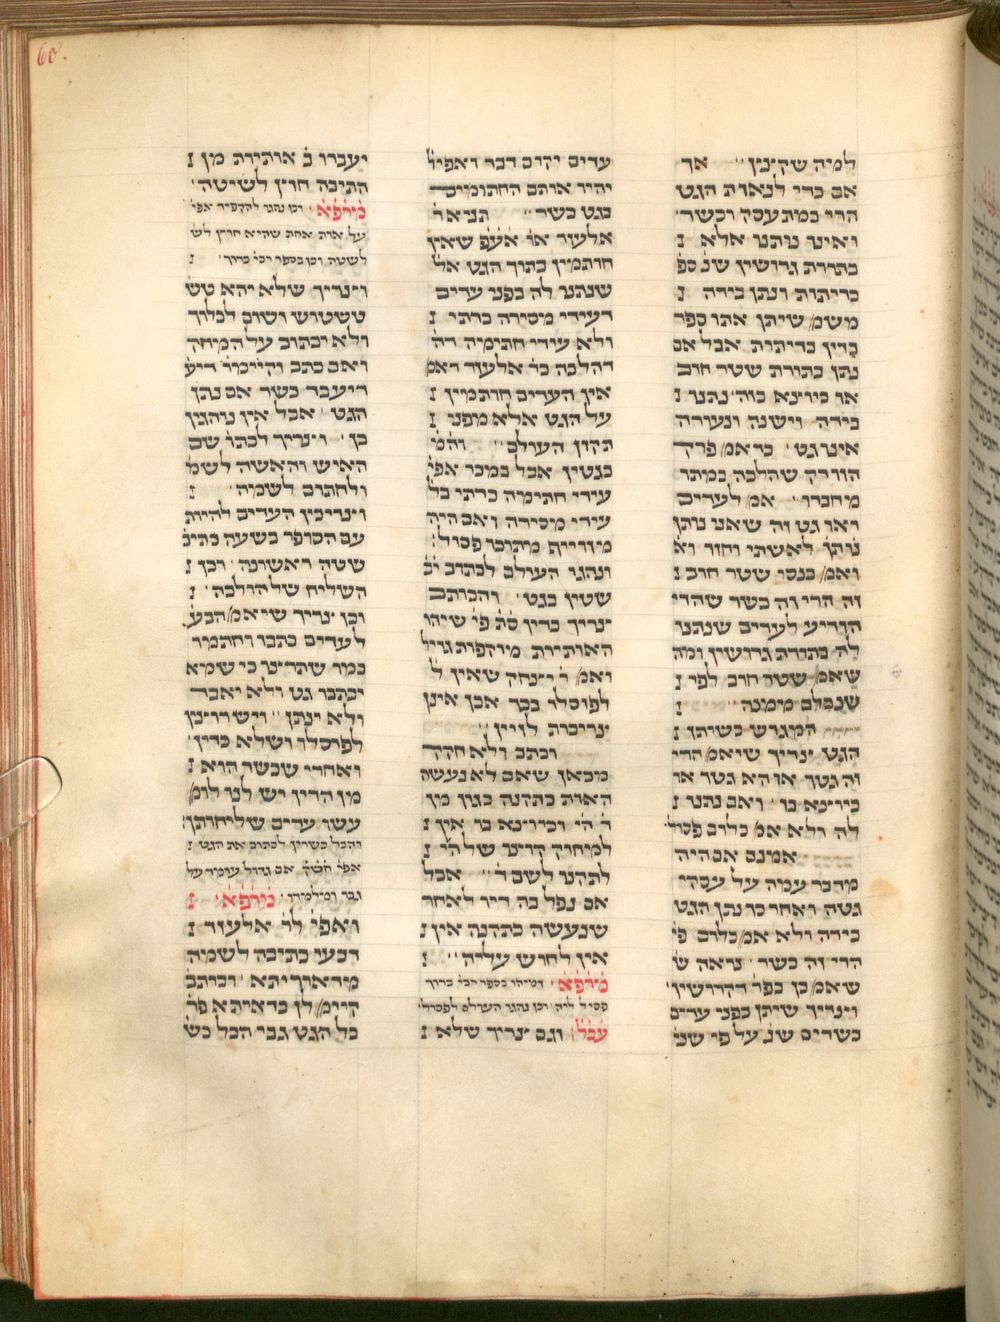 60.
למיה שקיצץ׳׳ אך
אם כדי לנאות הגט
הרי כמת עסה וכשר׳
ואינו נותנו אלא
בתורת גרושין שנ׳ ספ׳
כריתות ונתן בידה
משמ׳ שיתן אתו ספר
בדין כריתות אבל אם
נתן בתורת שטר חוב
או כיוצא בזה נתנו
בידה וישנה ונעורה
אינו גט׳ כר אמ׳ פרק
הזורק שהלכה כמותו
מחברו׳ אמ׳ לעדים
ראו גט זה שאני נותן
נותן לאשתי וחזר וא׳
ואמ׳ כנסי שטר חוב
זה הרי זה כשר שהרי
הודיע לעדים שנתנו
לה בתורת גרושין ומה
שאמ׳ שטר חוב לפי
שנכלם מימנה׳׳
המגרש כשיתן
הגט צריך שיאמ׳ הרי
זה גטך או הא גטך או
כיוצא בו׳ ואם נתנו
לה ולא אמ׳ כלום פסול׳
אמנם אם היה
מדבר עמה על עסקי
גטה ואחר כך נתן הגט
בידה ולא אמ׳ כלום פי׳
הרי זה כשר׳ נראה
שיאמ׳ כן כפר׳ דקדושין׳
וצריך שיתן בפני עדים
כשרים שנ׳ על פי שני
עדים יקום דבר ואפילו
יהיו אותם החתומים
בגט כשר׳׳ תניא ר׳
אלעזר או׳ אעפ׳ שאין
חותמין בתוך הגט אלא
שנתנו לה בפני עדים
דעידי מסירה כרתי
ולא עידי חתימה דה׳
דהלכה כר׳ אלעזר דאמ׳
אין העדים חותמין
על הגט אלא מפני
תקון העולם׳׳ וה׳מ׳
בגטין אבל במכר אפי׳
עידי חתימה כרתי בל׳
עידי מסירה ואם היה
מזוייף מתוכו פסול׳
ונהגו העולם לכתוב יב׳
שטין בגט׳ והכותב
צריך כדין סת׳ פי׳ שיהו
האותיות מוקפות גויל
ואמ׳ ר׳ יצחק שאין ל׳
לפוסלו בכך אכן אינן
צריכות לזויין׳׳
וכתב ולא חקק
מכאן שאם לא נעשה
האות כתקנה כגון מן
ר׳ ה׳ וכיוצא בו אין
למיחוק קוצו של ה׳
לתקנו לשם ד׳׳ אבל
אם נפל בה דיו לאחר
שנעשה כתקנה אין
אין לחוש עליה׳׳
מורפא׳ דמיהו בספר רבי׳ ברוך
פסיל ליה׳ וכן נהגו העולם לפסול׳
עכל׳ וגם צריך שלא
יעברו ב׳ אותיות מן
התיבה חוץ לשיטה׳
מורפא׳ וכן נהגו להקפיד אפי׳
על אות אחת שהיא חוץ לש׳
לשטה וכן בספר רבי׳ ברוך׳
וצריך שלא יהא טש׳
טשטוש ושום לכלוך
ולא יכתוב על המיחק
ואם כתב וקיימו׳ דיע׳
דיעבד כשר אם נתן
הגט׳ אבל אין נוהגין
כן׳ וצריך לכתו׳ שם
האיש והאשה לשמ׳
ולחתום לשמיה׳
וצריכין העדים להיות
עם הסופר בשעה כתיב׳
שטה ראשונה׳ וכן
השליח של הולכה׳
וכן צריך שיאמ׳ הבע׳
לעדים כתבו וחתמו
כמו שתרצו כי שמא
יכתבו גט ולא יאבד
ולא ינתן׳׳ ויש רוצין
לפוסלו ושלא כדין׳
ואחרי שכשר הוא
מן הדין יש לנו לומ׳
עשו עדים שליחותן
והכל כשרין לכתוב את הגט
אפי׳ חש״וק אם גדול עומד על
גבו ומילמדו׳ מורפא׳
ואפי׳ לר׳ אלעזר
דבעי כתיבה לשמה
מדאורייתא׳ וכדכתב
קיימ׳ לן כדאיתא פר׳
כל הגט גבי הכל כש׳